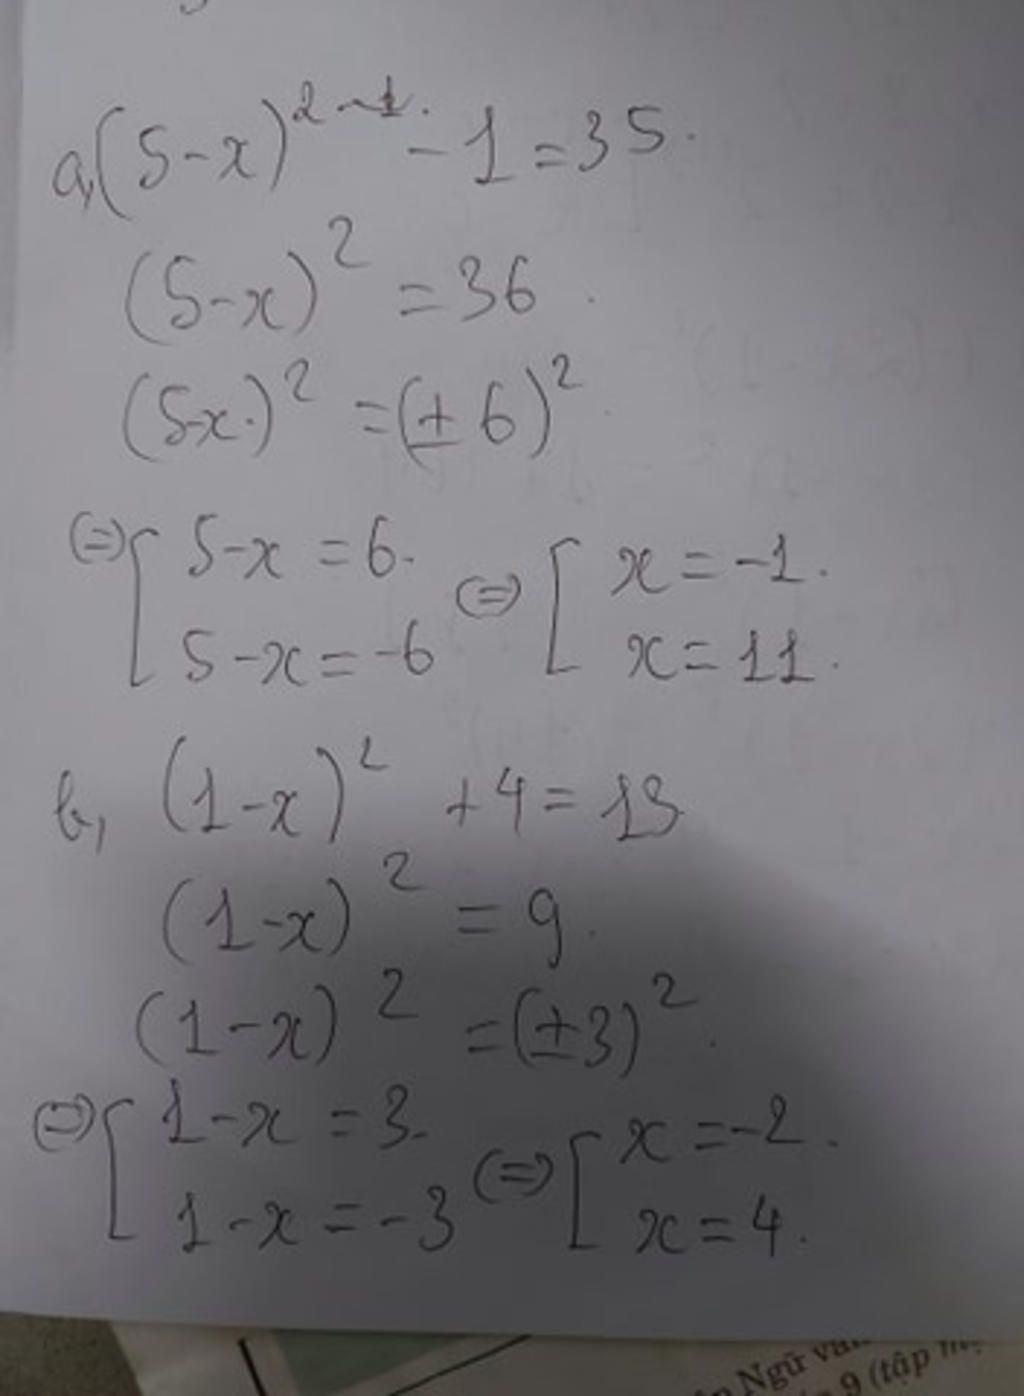 a, (5-x)² - 1 = 35.
(5-x)² = 36.
(5-x.)² = (±6)².
(=) [ 5-x = 6. (=) [ x = -1.
5-x = -6 x = 11.
b, (1-x)² + 4 = 13
(1-x)² = 9.
(1-x)² = (±3)².
(=) [ 1-x = 3. (=) [ x = -2.
1-x = -3 x = 4.
Ngữ vă
9 (tập